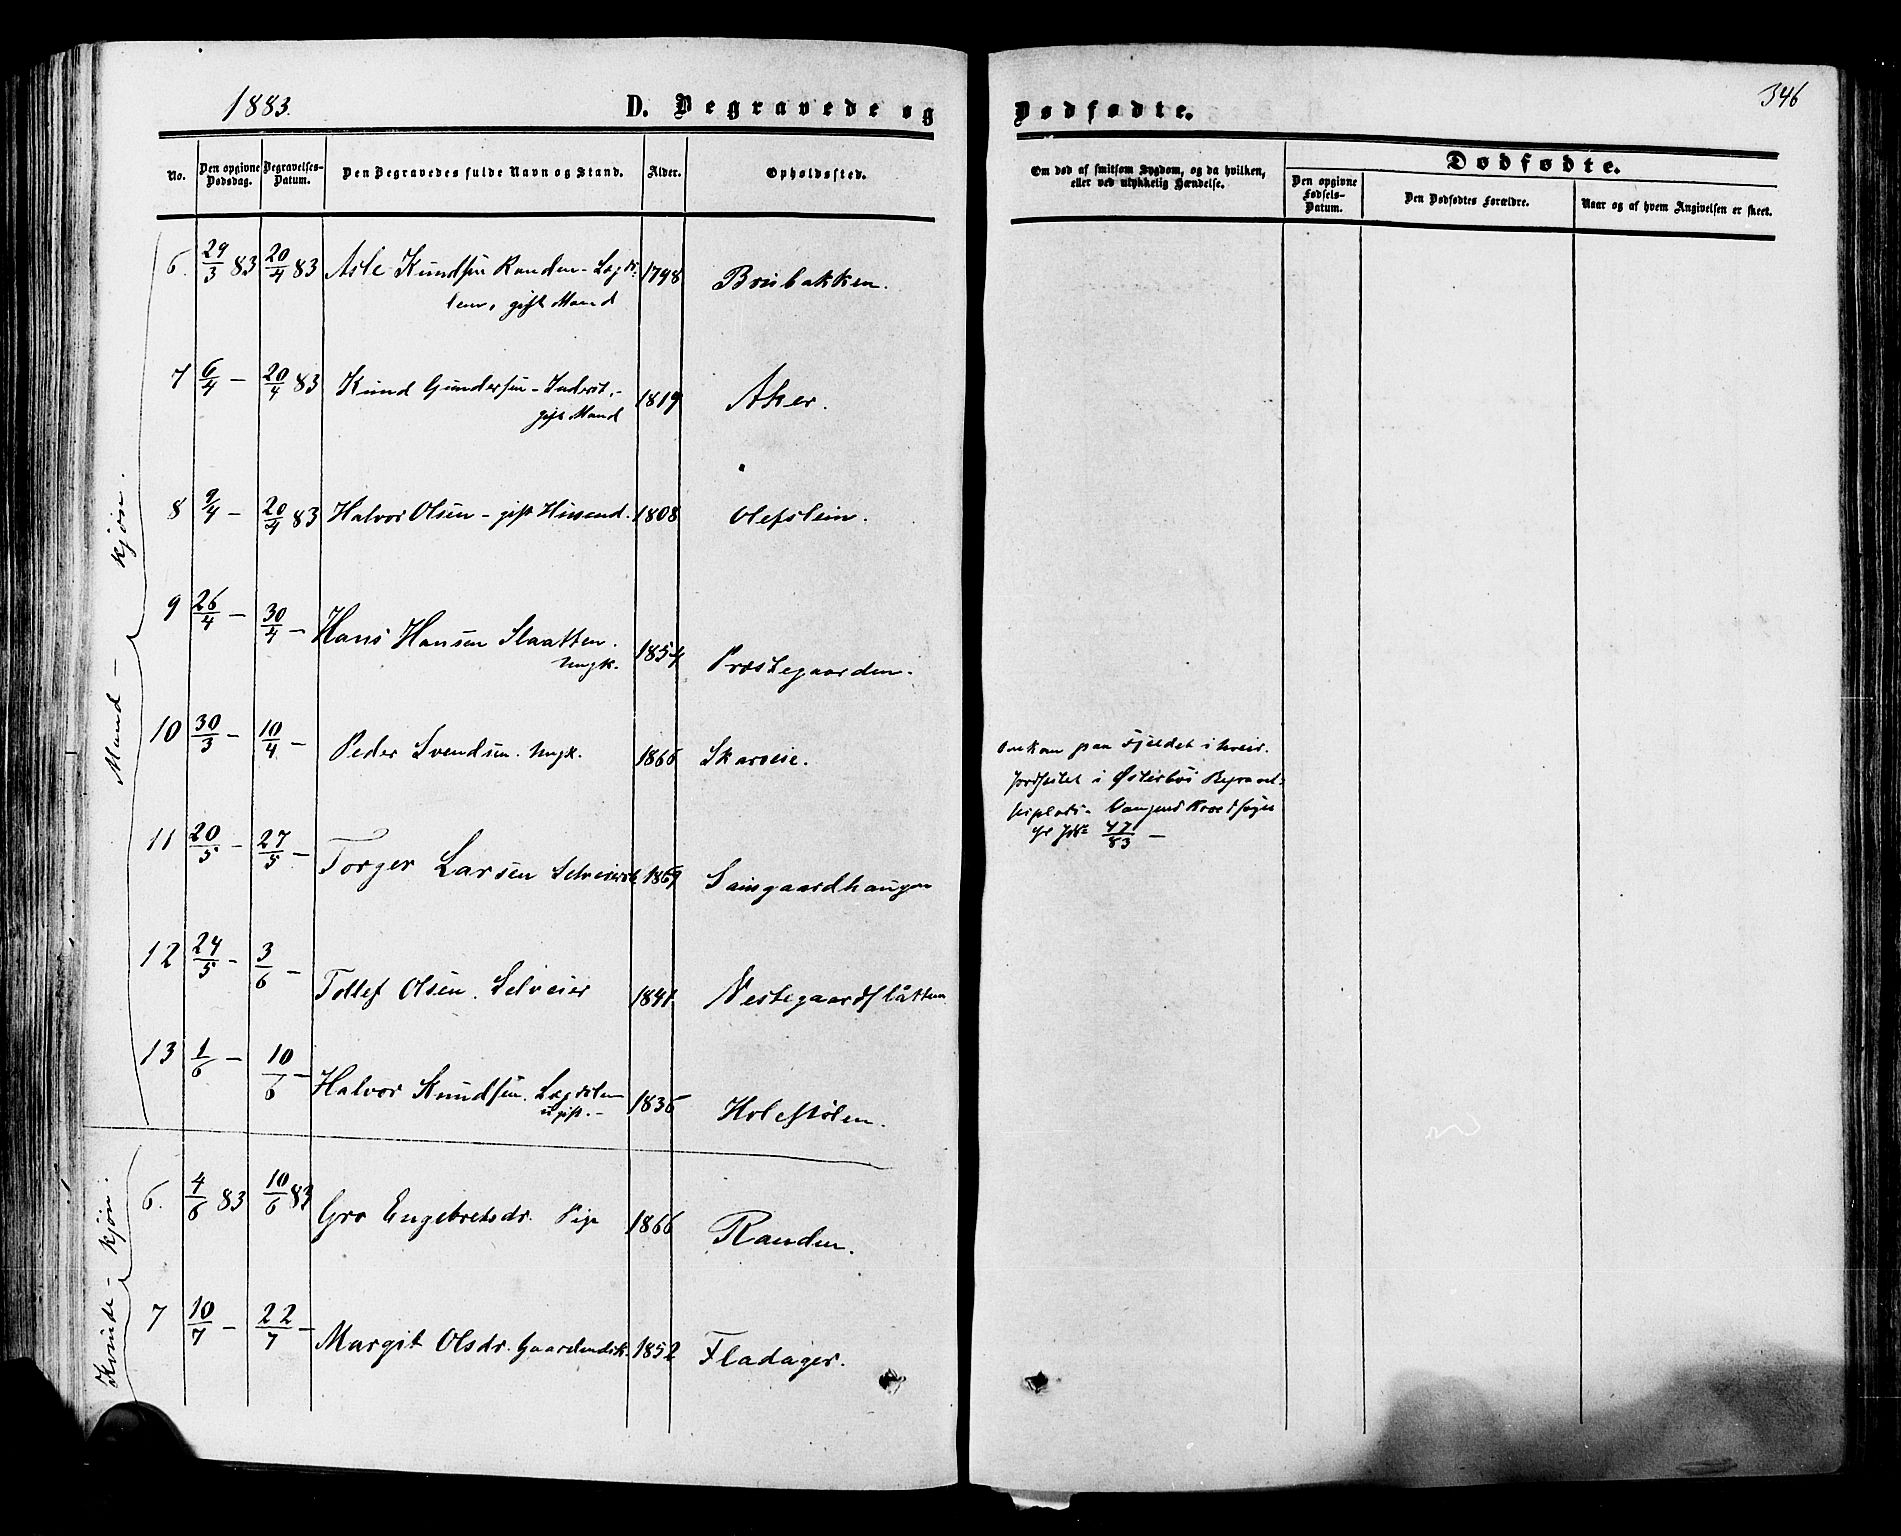 1883.
D. Begravede og
Dødfødte.
346
No.
Den opgivne Dødsdag.
Begravelses-Datum.
Den Begravedes fulde Navn og Stand.
Alder.
Opholdssted.
Om død af smitsom Sygdom, og da hvilken, eller ved ulykkelig Hændelse.
Dødfødte.
Den opgivne Fødsels-Datum.
Den Dødfødtes Forældre.
Naar og af hvem Angivelsen er skeet.
Mand - kjøn.
6. 29/3 83 20/4 83 Asle Knudsen Randen - Lægds-
lem, gift Mand 1798 Brubakken.
7 6/4 - 20/4 83 Knud Gundersen - Inderst. -
gift Mand 1819 Aker.
8 9/4 - 20/4 83 Halvor Olsen - gift Husmd. 1808 Olefstein.
9 26/4 - 30/4 - Hans Hansen Slaatten.
Ungk. 1854 Præstegaarden.
10 30/3 - 10/4 - Peder Svendsen. Ungk. 1866 Skarseie.
Omkom paa Fjeldet i
jordfæstet i Østerbøi Begravel-
sesplads.
47/83 -
11 20/5 - 27/5 - Torger Larsen 1869 Sausgaardhaugen
12 24/5 - 3/6 - Tollef Olsen. Selveier 1841 Nestegaardslåtten
13 1/6 - 10/6 - Halvor Knudsen. Lægdslem
ugift. - 1836 Holestølen.
Kvinde - kjøn.
6. 4/6 83 10/6 83 Gro Engebretsdr. Pige 1866 Randen.
7 10/7 - 22/7 - Margit Olsdr. Gaardmdsk. 1852 Fladager.